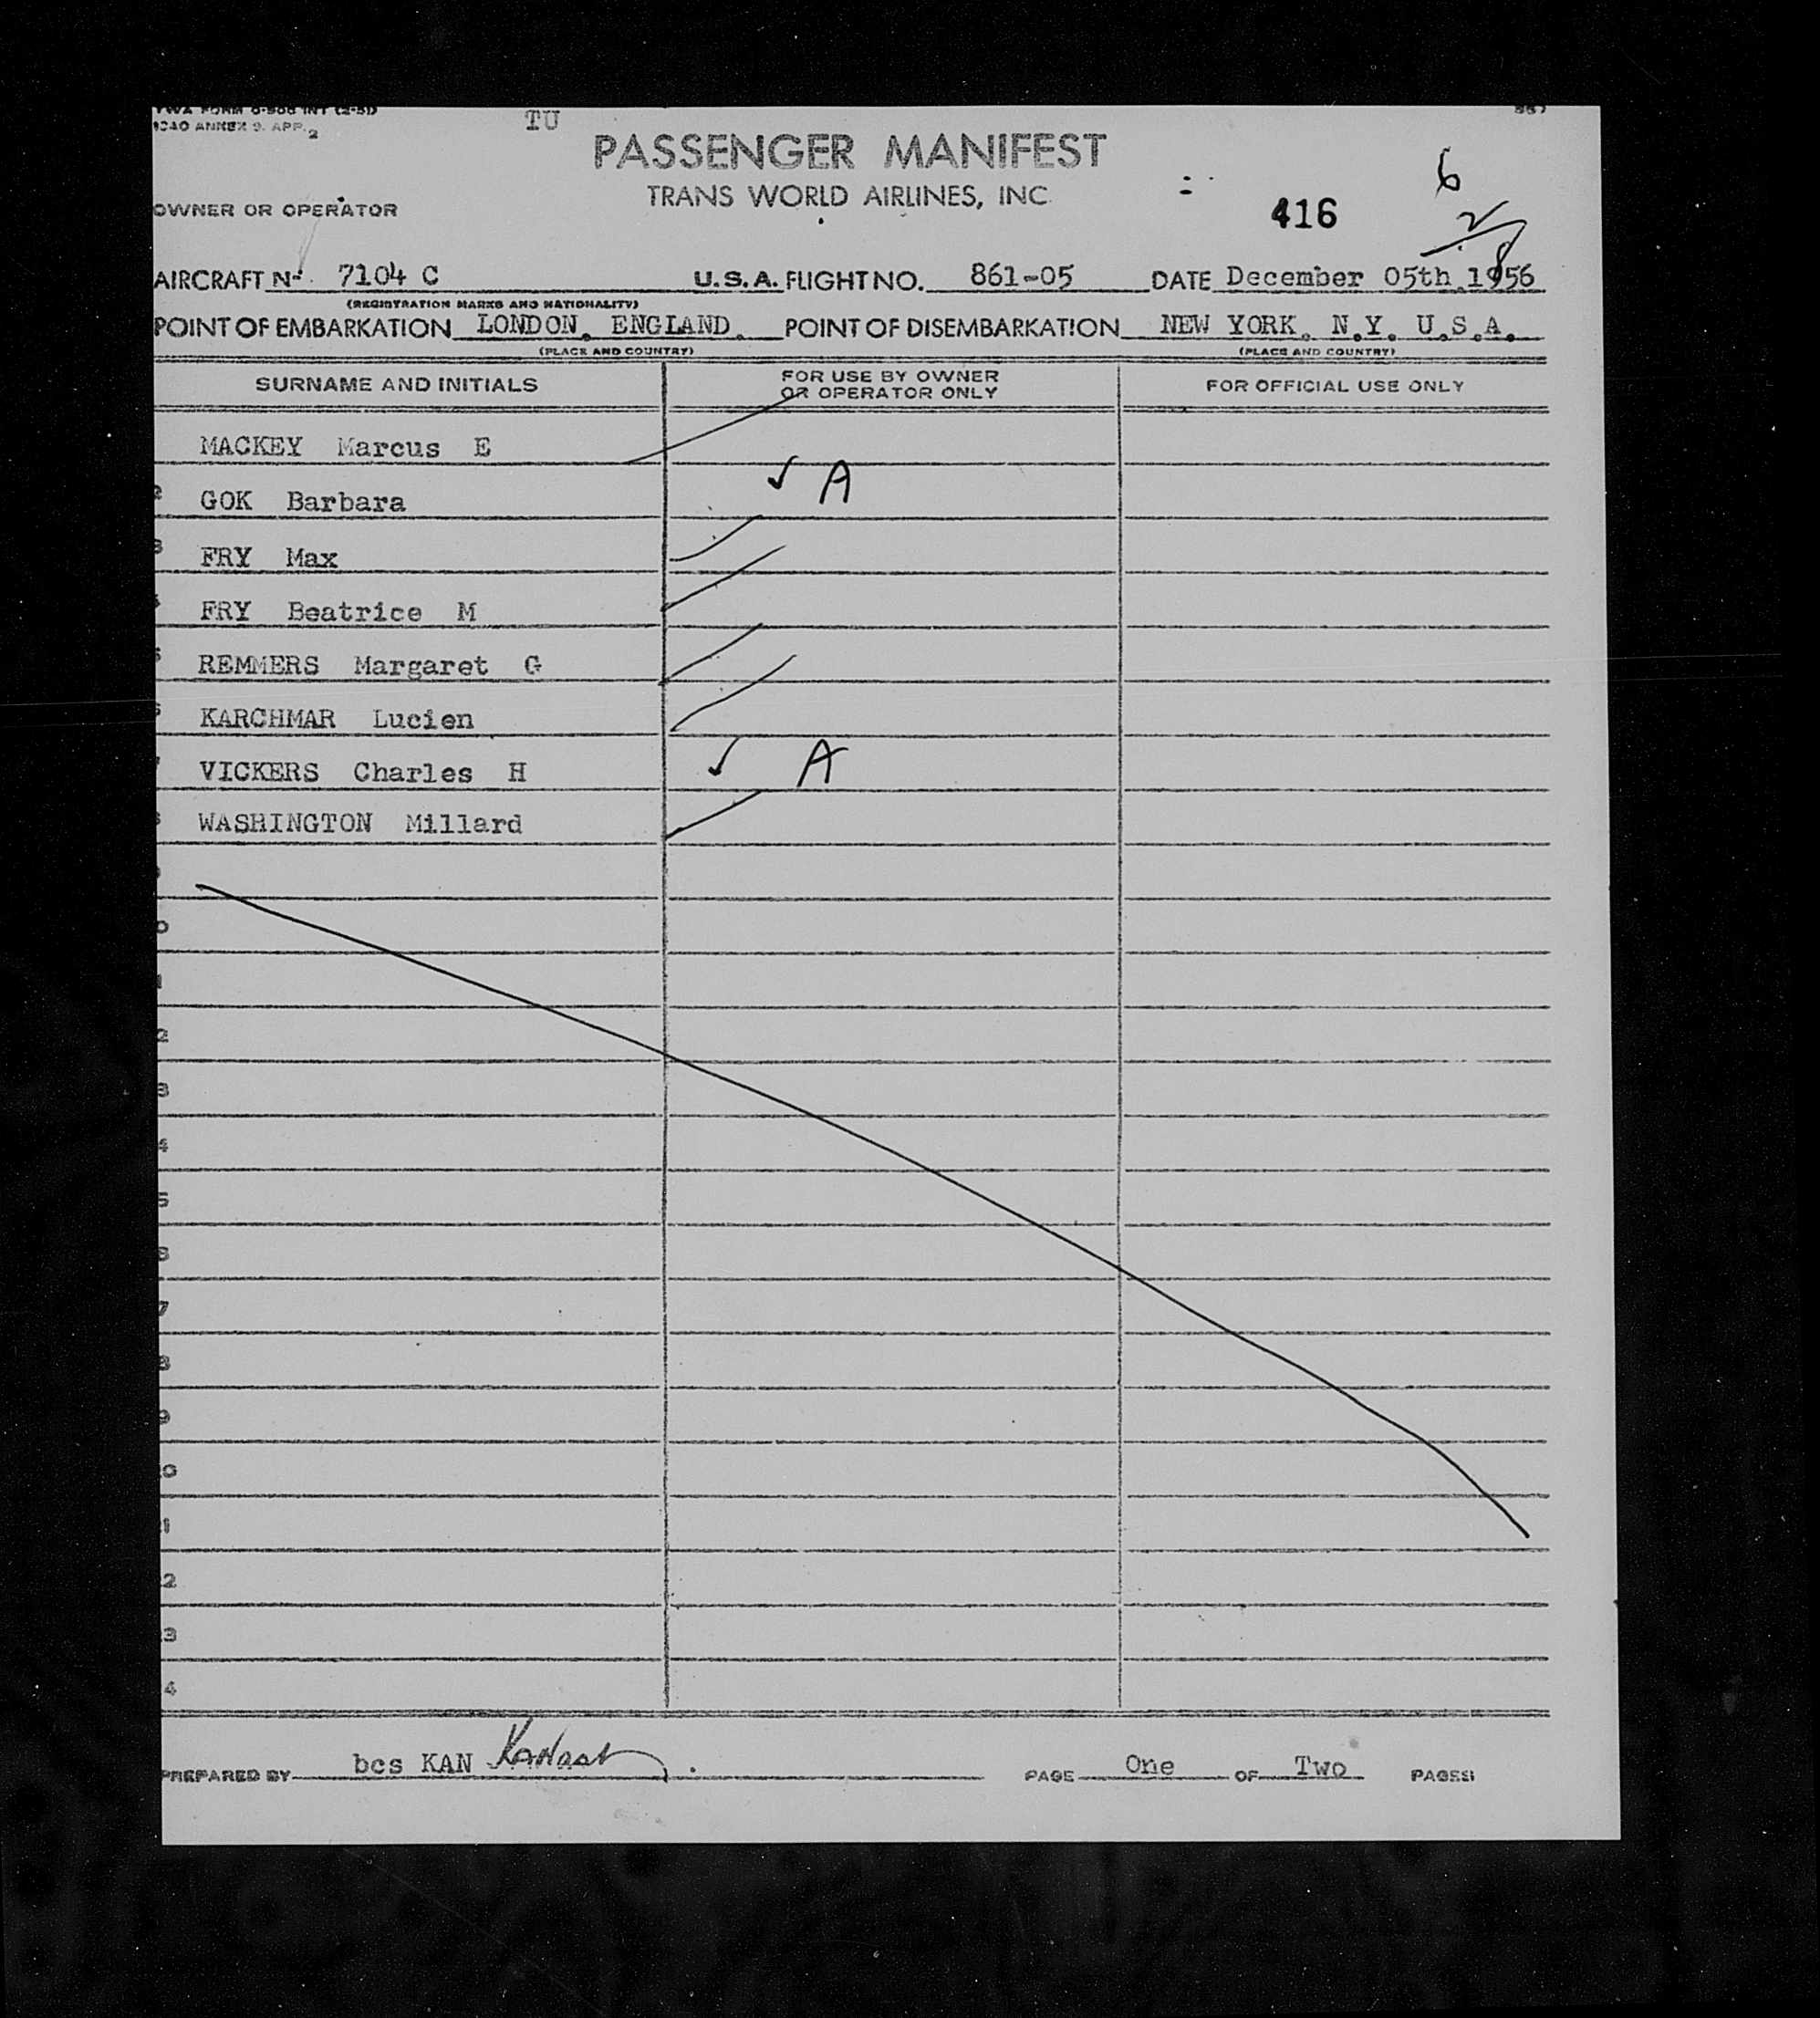 TWA FORM O-906 INT (2-51)
ICAO ANNEX 9. APP. 2
TU
PASSENGER MANIFEST
6
TRANS WORLD AIRLINES, INC
2
OWNER OR OPERATOR
416
8
AIRCRAFT Nº 7104 C U.S.A. FLIGHT NO. 861-05 DATE December 05th.1956
(REGISTRATION MARKS AND NATIONALITY)
POINT OF EMBARKATION LONDON. ENGLAND. POINT OF DISEMBARKATION NEW YORK. N.Y. U.S.A.
(PLACE AND COUNTRY) (PLACE AND COUNTRY)
SURNAME AND INITIALS FOR USE BY OWNER OR OPERATOR ONLY FOR OFFICIAL USE ONLY
MACKEY Marcus E
2 GOK Barbara ✓ A
3 FRY Max
FRY Beatrice M
5 REMMERS Margaret G
6 KARCHMAR Lucien
VICKERS Charles H ✓ A
8 WASHINGTON Millard
9
0
1
2
3
4
5
6
7
8
9
0
1
2
3
4
PREPARED BY bcs KAN PAGE One OF Two PAGES